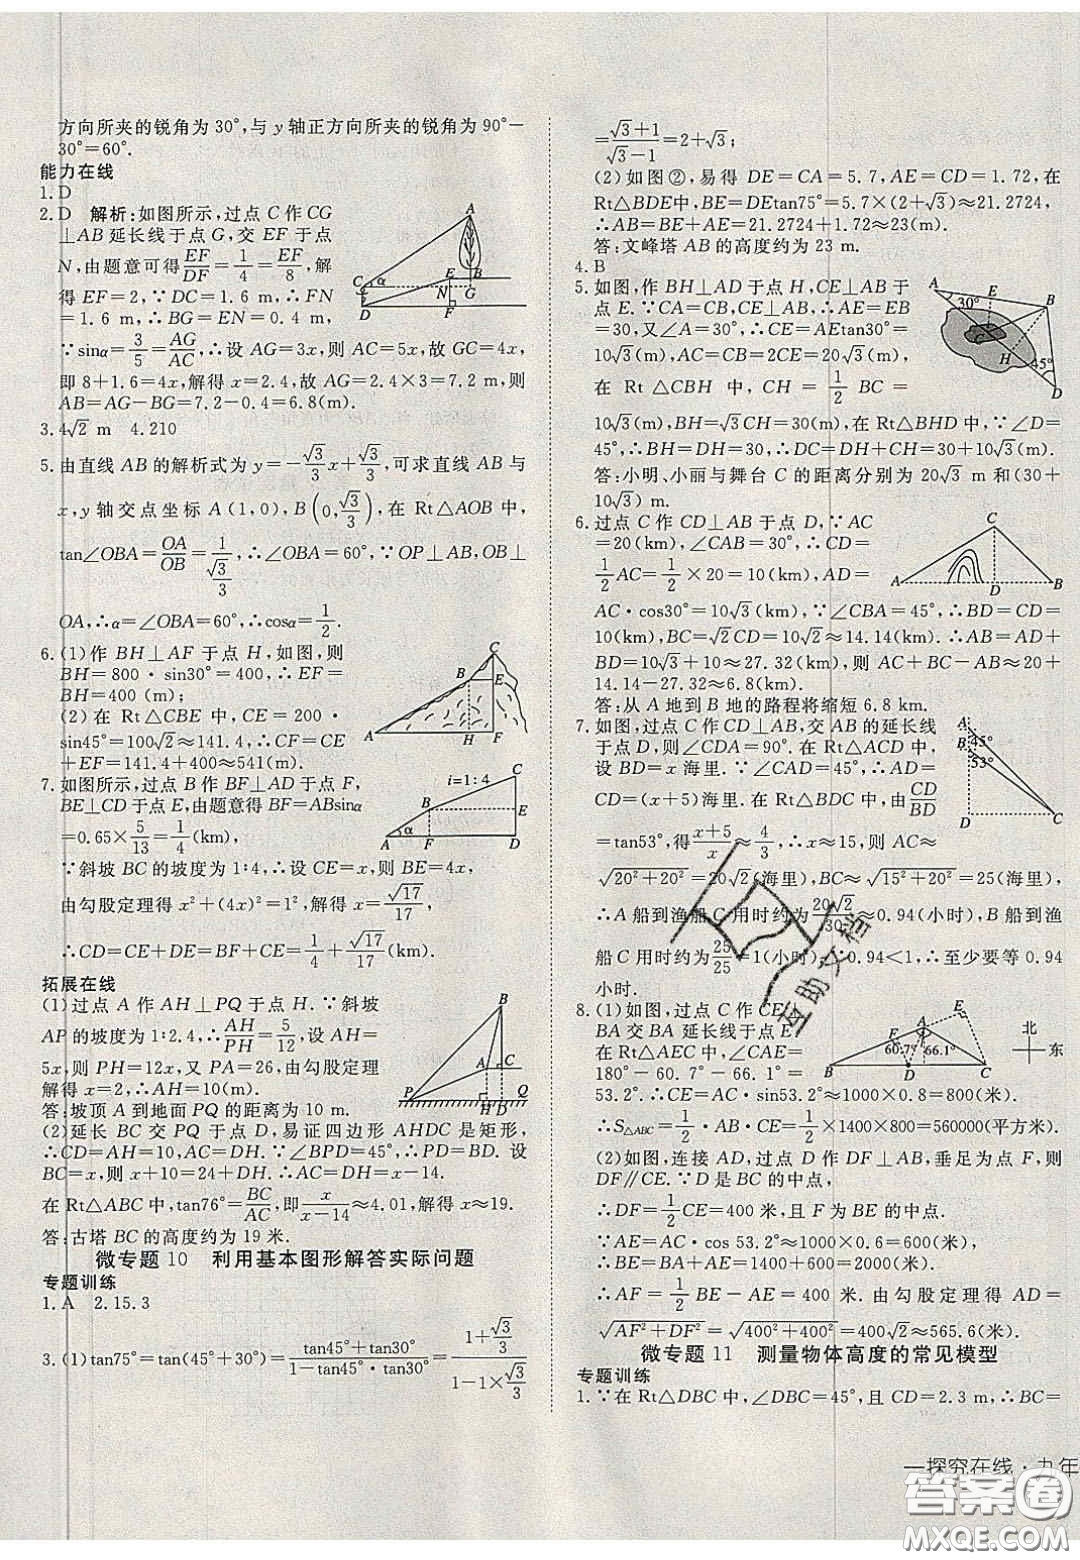 方向所夹的锐角为30°,与y轴正方向所夹的锐角为90°−
30°=60°.
能力在线
1.D
2.D 解析:如图所示,过点C作CG
⊥AB延长线于点G,交EF于点
N,由题意可得EF/DF=1/4=EF/8,解
得EF=2,∵DC=1.6 m,∴FN
=1.6 m,∴BG=EN=0.4 m,
∵sinα=3/5=AG/AC,∴设AG=3x,则AC=5x,故GC=4x,
即8+1.6=4x,解得x=2.4,故AG=3x=7.2 m,则
AB=AG−BG=7.2−0.4=6.8(m).
3.4√2 m 4.210
5.由直线AB的解析式为y=−√3/3x+√3/3,可求直线AB与
x,y轴交点坐标A(1,0),B(0,√3/3),在Rt△AOB中,
tan∠OBA=OA/OB=1/(√3/3),∴∠OBA=60°,∵OP⊥AB,OB⊥
OA,∴α=∠OBA=60°,∴cosα=1/2.
6.(1)作BH⊥AF于点H,如图,则
BH=800·sin30°=400,∴EF=
BH=400(m);
(2)在Rt△CBE中,CE=200·
sin45°=100√2≈141.4,∴CF=CE
+EF=141.4+400≈541(m).
7.如图所示,过点B作BF⊥AD于点F,
BE⊥CD于点E,由题意得BF=ABsinα
=0.65×5/13=1/4(km),
∵斜坡BC的坡度为1∶4,∴设CE=x,则BE=4x,
由勾股定理得x²+(4x)²=1²,解得x=√17/17,
∴CD=CE+DE=BF+CE=1/4+√17/17(km).
拓展在线
(1)过点A作AH⊥PQ于点H.∵斜坡
AP的坡度为1∶2.4,∴AH/PH=5/12,设AH=
5x,则PH=12x,又PA=26,由勾股定理
解得x=2,∴AH=10(m).
答:坡顶A到地面PQ的距离为10 m.
(2)延长BC交PQ于点D,易证四边形AHDC是矩形,
∴CD=AH=10,AC=DH.∵∠BPD=45°,∴PD=BD.设
BC=x,则x+10=24+DH.∴AC=DH=x−14.
在Rt△ABC中,tan76°=BC/AC,即x/(x−14)≈4.01,解得x≈19.
答:古塔BC的高度约为19米.
微专题10 利用基本图形解答实际问题
专题训练
1.A 2.15.3
3.(1)tan75°=tan(45°+30°)=(tan45°+tan30°)/(1−tan45°·tan30°)=(1+√3/3)/(1−1×√3/3)
=(√3+1)/(√3−1)=2+√3;
(2)如图②,易得DE=CA=5.7,AE=CD=1.72,在
Rt△BDE中,BE=DEtan75°=5.7×(2+√3)≈21.2724,
∴AB=BE+AE=21.2724+1.72≈23(m).
答:文峰塔AB的高度约为23 m.
4.B
5.如图,作BH⊥AD于点H,CE⊥AB于
点E.∵CA=CB,CE⊥AB,∴AE=EB
=30,又∠A=30°,∴CE=AEtan30°=
10√3(m),∴AC=CB=2CE=20√3(m),
在Rt△CBH中,CH=1/2BC=
10√3(m),BH=√3CH=30(m),在Rt△BHD中,∵∠D=
45°,∴BH=DH=30,∴DC=DH+CH=30+10√3(m).
答:小明、小丽与舞台C的距离分别为20√3 m和(30+
10√3) m.
6.过点C作CD⊥AB于点D,∵AC
=20(km),∠CAB=30°,∴CD=
1/2AC=1/2×20=10(km),AD=
AC·cos30°=10√3(km),∵∠CBA=45°,∴BD=CD=
10(km),BC=√2CD=10√2≈14.14(km).∴AB=AD+
BD=10√3+10≈27.32(km).则AC+BC−AB≈20+
14.14−27.32≈6.8(km).
答:从A地到B地的路程将缩短6.8 km.
7.如图,过点C作CD⊥AB,交AB的延长线
于点D,则∠CDA=90°.在Rt△ACD中,
设BD=x海里.∵∠CAD=45°,∴AD=
CD=(x+5)海里.在Rt△BDC中,由CD/BD
=tan53°,得(x+5)/x≈4/3,∴x≈15,则AC≈
√(20²+20²)=20√2(海里),BC≈√(15²+20²)=25(海里),
∴A船到渔船C用时约为20√2/30≈0.94(小时),B船到渔
船C用时约为25/25=1(小时).∵0.94<1,∴至少要等0.94
小时.
8.(1)如图,过点C作CE⊥
BA交BA延长线于点E,
在Rt△AEC中,∠CAE=
180°−60.7°−66.1°=
53.2°.∴CE=AC·sin53.2°≈1000×0.8=800(米).
∴S△ABC=1/2·AB·CE=1/2×1400×800=560000(平方米).
(2)如图,连接AD,过点D作DF⊥AB,垂足为点F,则
DF∥CE.∵D是BC的中点,
∴DF=1/2CE=400米,且F为BE的中点.
∵AE=AC·cos53.2°≈1000×0.6=600(米),
∴BE=BA+AE=1400+600=2000(米).
∴AF=1/2BE−AE=400米.由勾股定理得AD=
√(AF²+DF²)=√(400²+400²)=400√2≈565.6(米).
微专题11 测量物体高度的常见模型
专题训练
1.∵在Rt△DBC中,∠DBC=45°,且CD=2.3 m,∴BC=
一探究在线·九年
互助文档
答案圈
MXQE.COM